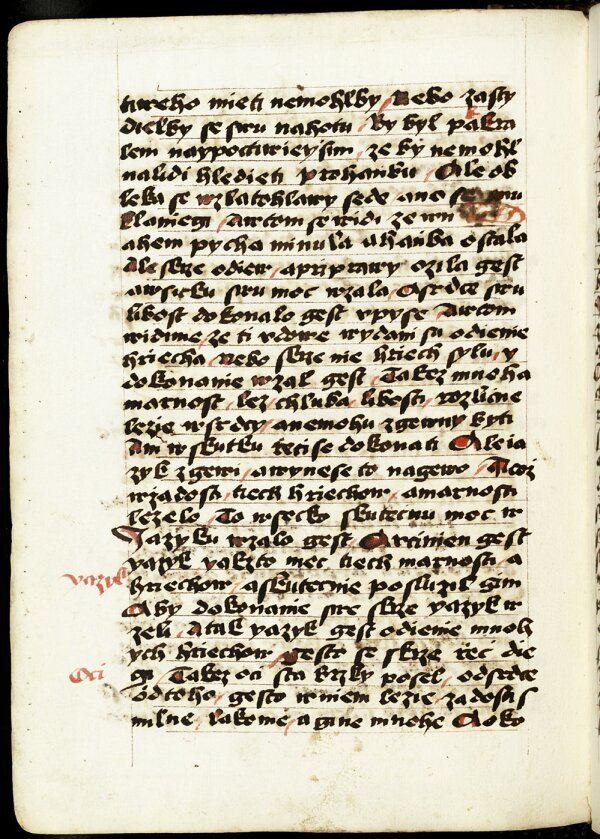 tureho mieti nemohlby Nebo zasty
dielby se swu nahotu By byl pakra
lem naypoctiwieysim ze by nemohl
nalidi hledieti prohanbu Ale ob
leka se wzlatohlawy sede ano se mu
klaniegi Awtom se widi ze wn
ahem pycha minula ahanba ostala
Ale skrze odiew apryprawy ozila gest
awsicku swu moc wzala Asrdce swu
libost dokonalo gest wpyse Awtom
widime ze ti rdowe wydani su odienie
hriecha Nebo skrze nie hriech sylu y
dokonanie wzal gest Takez mnoha
marnost bez chluba libosti rozlicne
lezie wsrdcy anemohu zgewny byti
Ani wskutku tecise dokonati Ale ia
zyk zgewi awynese to nagewo Acoz
wzadosti tiech hriechow amarnosti
lezelo To wsecko skutecnu moc w
Jazyku wzalo gest Avcinien gest
yazyk yakzto mec tiech marnosti a
yazyk
hriechow askutecnie posluzil gim
Aby dokonanie swe skrze yazyk w
zeli Atak yazyk gest odienie mnoh
ych hriechow gesto se skrze rec die
Oci
gi Takez oci sta brzky posel odsrdce
odtoho gesto wniem lezie zadosti s
milne lakome a gine mnohe Aoko